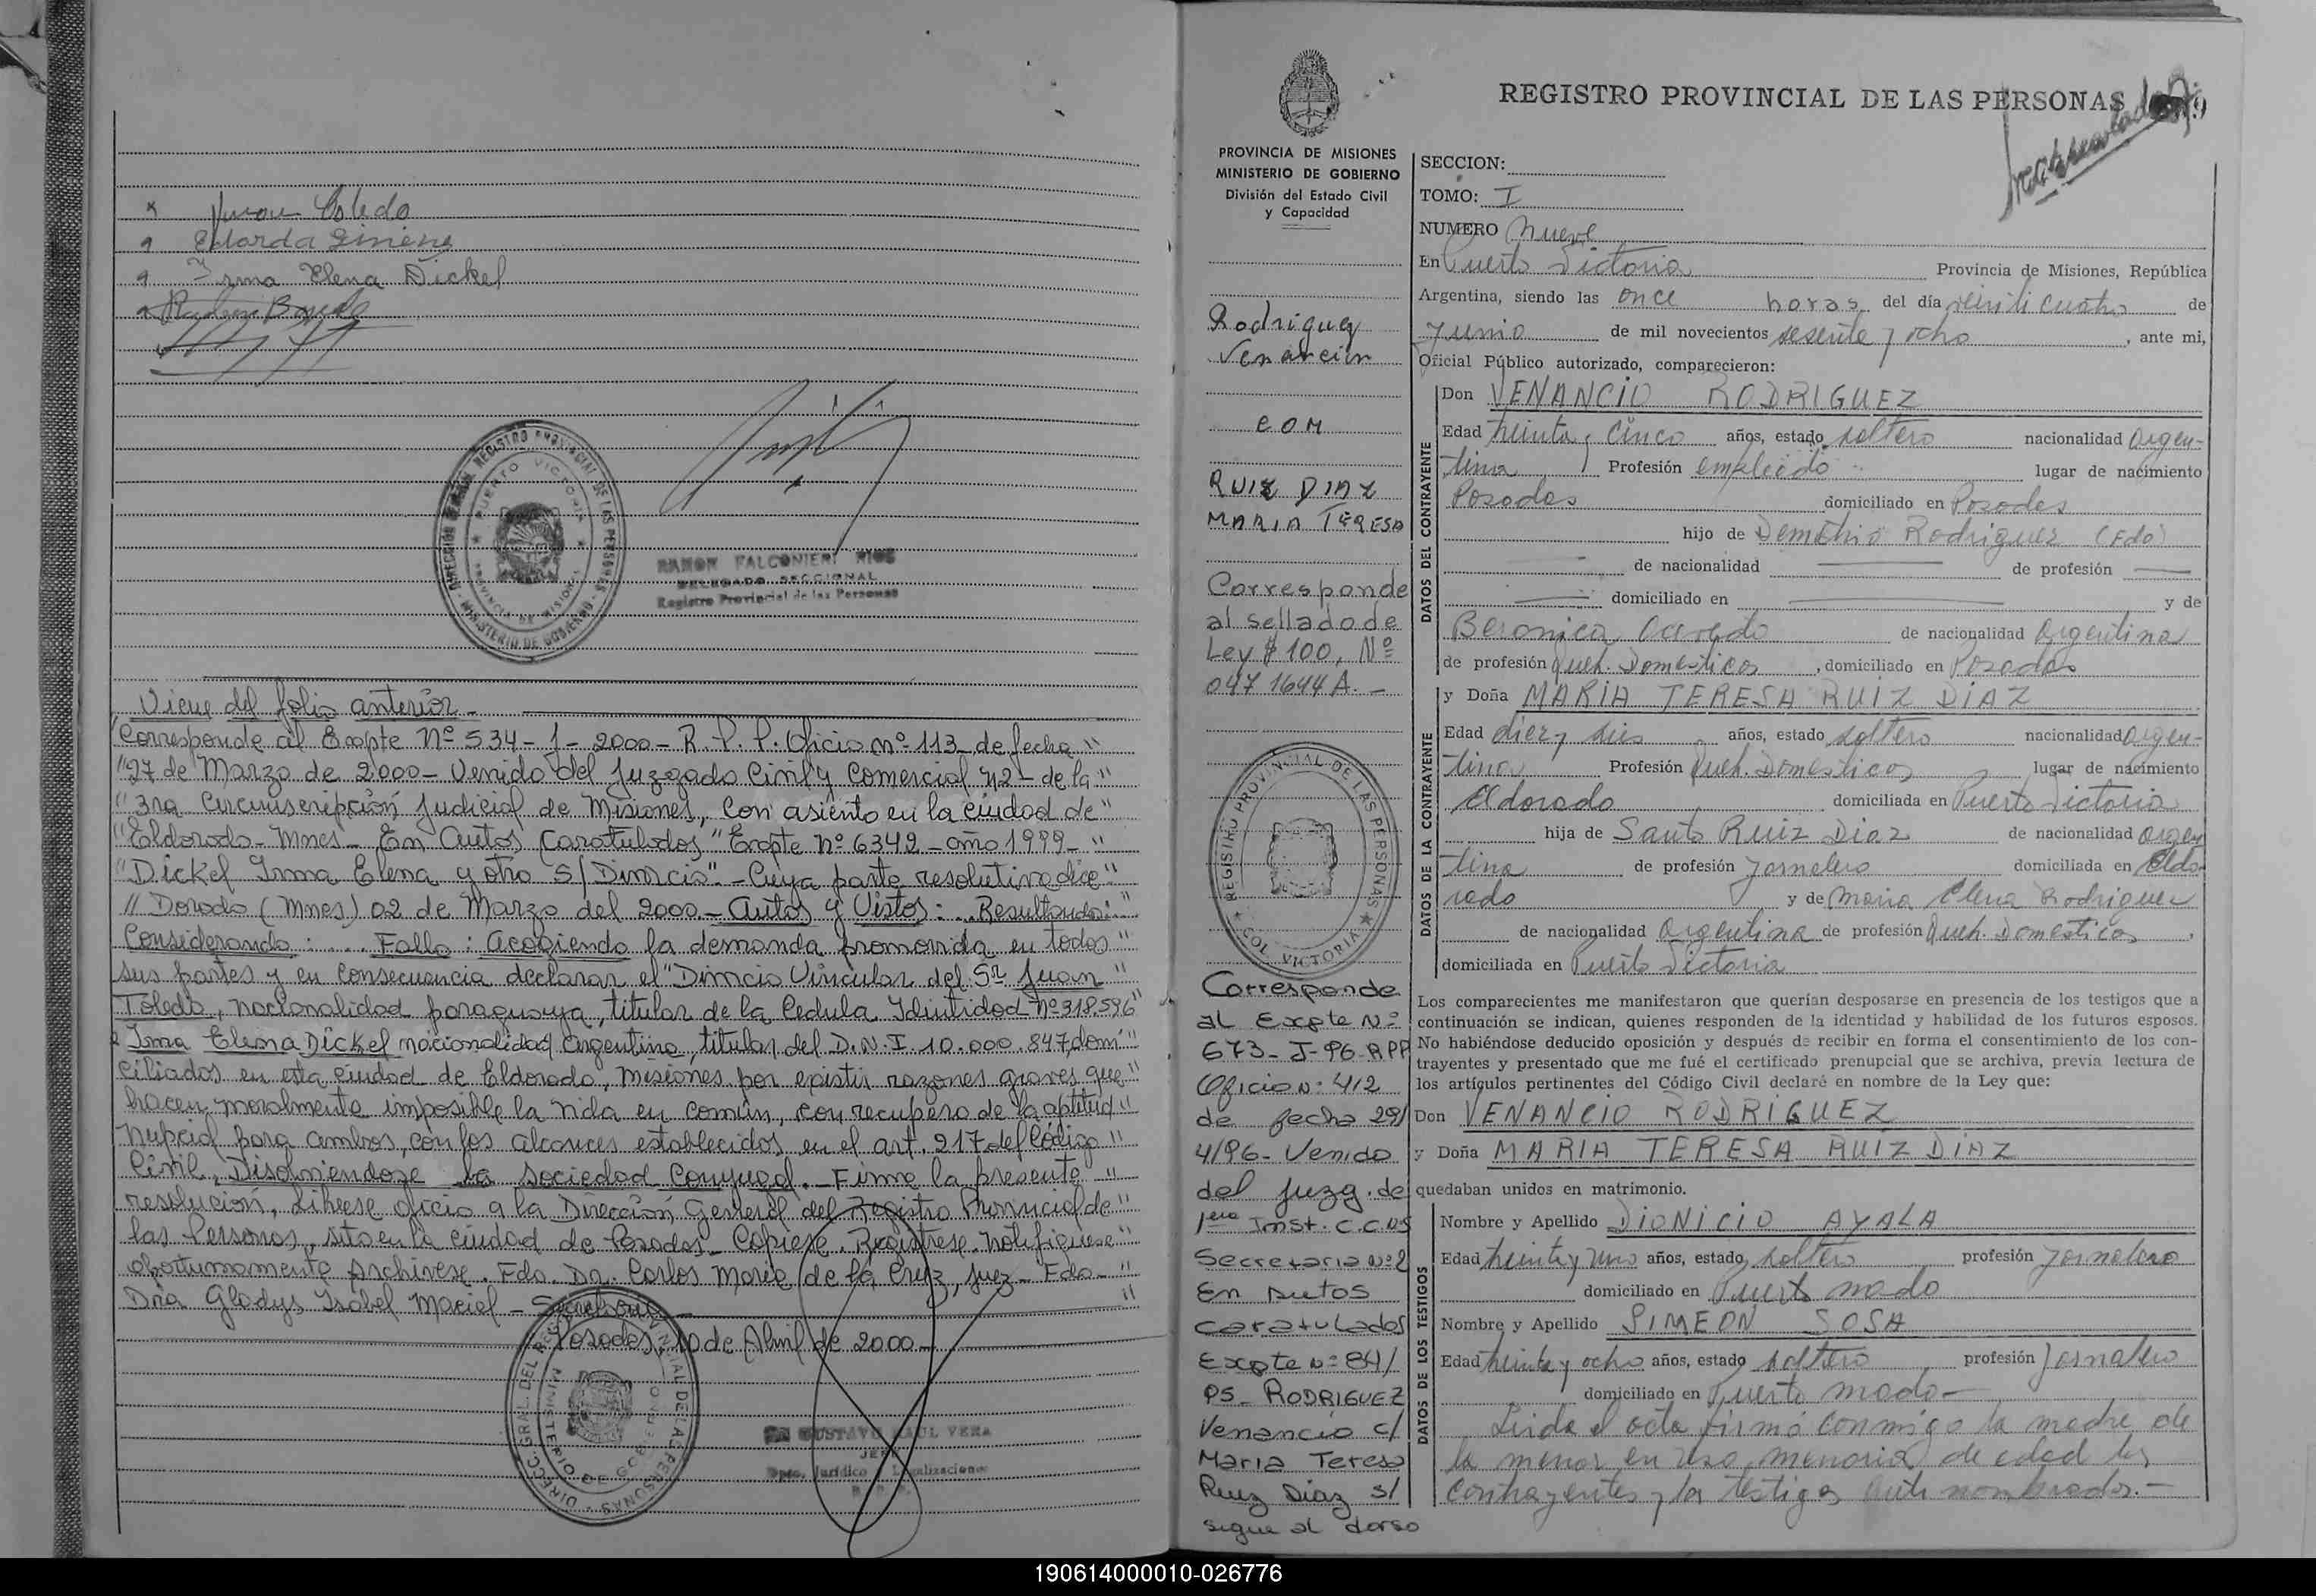 Juan Toledo
Eduarda Gimenez
Irma Elena Dickel
DIRECCION GRAL. REGISTRO PROVINCIAL DE LAS PERSONAS - MINISTERIO DE GOBIERNO -
PUERTO VICTORIA
PROVINCIA DE MISIONES
RAMON FALCONIERI RIOS
DELEGADO SECCIONAL
Registro Provincial de las Personas
Viene del folio anterior.-
Corresponde al Expte Nº 534-J-2000- R.P.P. Oficio nº 113_de fecha "
"27 de Marzo de 2000- Venido del Juzgado Civil y Comercial nº2- de la "
"3ra Circunscripción Judicial de Misiones, con asiento en la ciudad de "
"Eldorado- Mnes- En Autos Caratulados "Expte nº 6342-año 1999- "
"Dickel Irma Elena y otro S/Divorcio".-Cuya parte resolutiva dice "
"Dorado (Mnes) 02 de Marzo del 2000.- Autos y Vistos: .. Resultando: "
Considerando: .... Fallo: Acogiendo la demanda promovida en todas "
sus partes y en consecuencia declarar el "Divorcio Vincular del Sr Juan "
Toledo, nacionalidad paraguaya, titular de la Cedula Identidad nº 318.596 "
e Irma Elena Dickel nacionalidad Argentina, titular del D.N.I. 10.000.847, domi "
ciliados en esta ciudad de Eldorado, Misiones por existir razones graves que "
hacen moralmente imposible la vida en común, con recupero de la aptitud "
nupcial para ambos, con los alcances establecidos en el art. 217 del Código "
Civil, Disolviendose la sociedad Conyugal.- Firme la presente "
resolución, Librese oficio a la Dirección General del Registro Provincial de "
las Personas, sito en la ciudad de Posadas- Copiese. Registrese. Notifiquese "
oportunamente Archivese. Fdo. Dr. Carlos María de la Cruz, Juez- Fdo- "
Dra Gladys Isabel Maciel - Secretaria "
Posadas, 10 de Abril de 2000-
DIRECC. GRAL. DEL REG. PROVINCIAL DE LAS PERSONAS
MINISTERIO DE GOBIERNO
GUSTAVO RAUL VERA
JEFE
Dpto. Jurídico y Legalizaciones
REGISTRO PROVINCIAL DE LAS PERSONAS
PROVINCIA DE MISIONES
MINISTERIO DE GOBIERNO
División del Estado Civil
y Capacidad
Rodriguez
Venancio
CON
RUIZ DIAZ
MARIA TERESA
Corresponde
al sellado de
Ley $100, Nº
047 1644 A.-
REGISTRO PROVINCIAL DE LAS PERSONAS
COL. VICTORIA
Corresponde
al Expte Nº
673-J-96-RPP
Oficio Nº 412
de fecha 29/
4/96- Venido
del Juzg. de
1era Inst. C.C.
Secretaria Nº2
En Autos
caratulados
Expte Nº 84/
95- RODRIGUEZ
Venancio c/
Maria Teresa
Ruiz Diaz s/
sigue al dorso
SECCION:
TOMO: I
NUMERO nueve
En Puerto Victoria Provincia de Misiones, República
Argentina, siendo las once horas del día veinticuatro de
Junio de mil novecientos sesenta y ocho, ante mi,
Oficial Público autorizado, comparecieron:
DATOS DEL CONTRAYENTE
Don VENANCIO RODRIGUEZ
Edad treinta y cinco años, estado soltero nacionalidad Argen-
tina Profesión empleado lugar de nacimiento
Posadas domiciliado en Posadas
hijo de Demetrio Rodriguez (Fdo)
de nacionalidad — de profesión —
— domiciliado en — y de
Beronica Acevedo de nacionalidad Argentina
de profesión Queh. Domesticos, domiciliado en Posadas
DATOS DE LA CONTRAYENTE
y Doña MARIA TERESA RUIZ DIAZ
Edad diez y seis años, estado soltero nacionalidad Argen-
tina Profesión Queh. Domesticos lugar de nacimiento
Eldorado domiciliada en Puerto Victoria
hija de Santo Ruiz Diaz de nacionalidad Argen
tina de profesión Jornalero domiciliada en Eldo-
rado y de Maria Elena Rodriguez
de nacionalidad Argentina de profesión Queh. Domesticos,
domiciliada en Puerto Victoria
Los comparecientes me manifestaron que querían desposarse en presencia de los testigos que a
continuación se indican, quienes responden de la identidad y habilidad de los futuros esposos.
No habiéndose deducido oposición y después de recibir en forma el consentimiento de los con-
trayentes y presentado que me fué el certificado prenupcial que se archiva, previa lectura de
los artículos pertinentes del Código Civil declaré en nombre de la Ley que:
Don VENANCIO RODRIGUEZ
y Doña MARIA TERESA RUIZ DIAZ
quedaban unidos en matrimonio.
DATOS DE LOS TESTIGOS
Nombre y Apellido DIONICIO AYALA
Edad treinta y uno años, estado soltero profesión Jornalero
domiciliado en Puerto Mado
Nombre y Apellido SIMEON SOSA
Edad treinta y ocho años, estado soltero, profesión Jornalero
domiciliado en Puerto Mado-
Leida el acta firmó conmigo la madre de
la menor en su menoria de edad los
Contrayentes y los testigos ante nombrados.-
190614000010-026776